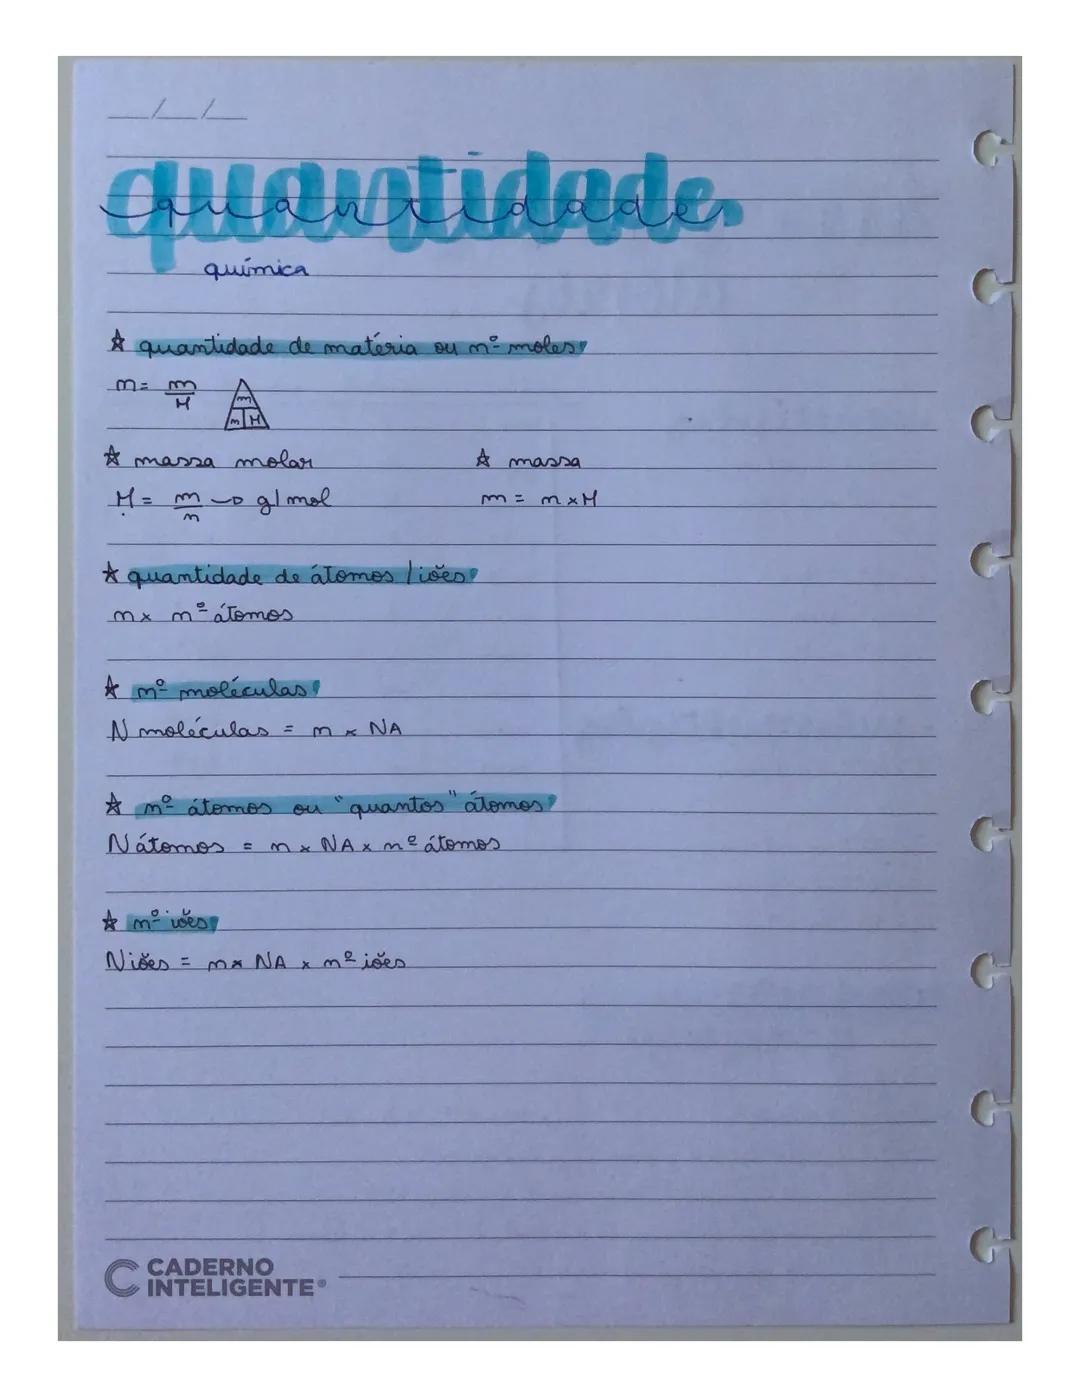 __/__/__
quantidade
química
☆ quantidade de matéria ou nº moles
n = m/M
m
n M
☆ massa molar ☆ massa
M = m/n → g/mol m = n x M
☆ quantidade de átomos / iões
n x nº átomos
☆ nº moléculas
N moléculas = n x NA
☆ nº átomos ou "quantos" átomos
N átomos = n x NA x nº átomos
☆ nº iões
N iões = n x NA x nº iões
CADERNO
INTELIGENTE®